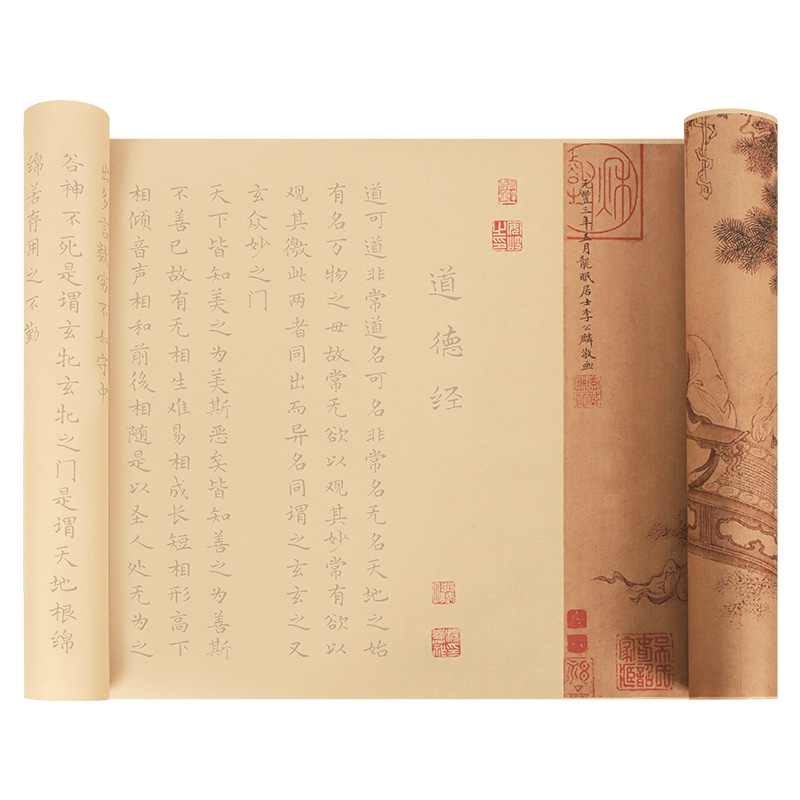 元豐三年月龍眠居士李公麟敬画
道德经
道可道非常道名可名非常名无名天地之始
有名万物之母故常无欲以观其妙常有欲以
观其徼此两者同出而异名同谓之玄玄之又
玄众妙之门
天下皆知美之为美斯恶矣皆知善之为善斯
不善已故有无相生难易相成长短相形高下
相倾音声相和前後相随是以圣人处无为之
出多言数穷不如守中
谷神不死是谓玄牝玄牝之门是谓天地根绵
绵若存用之不勤